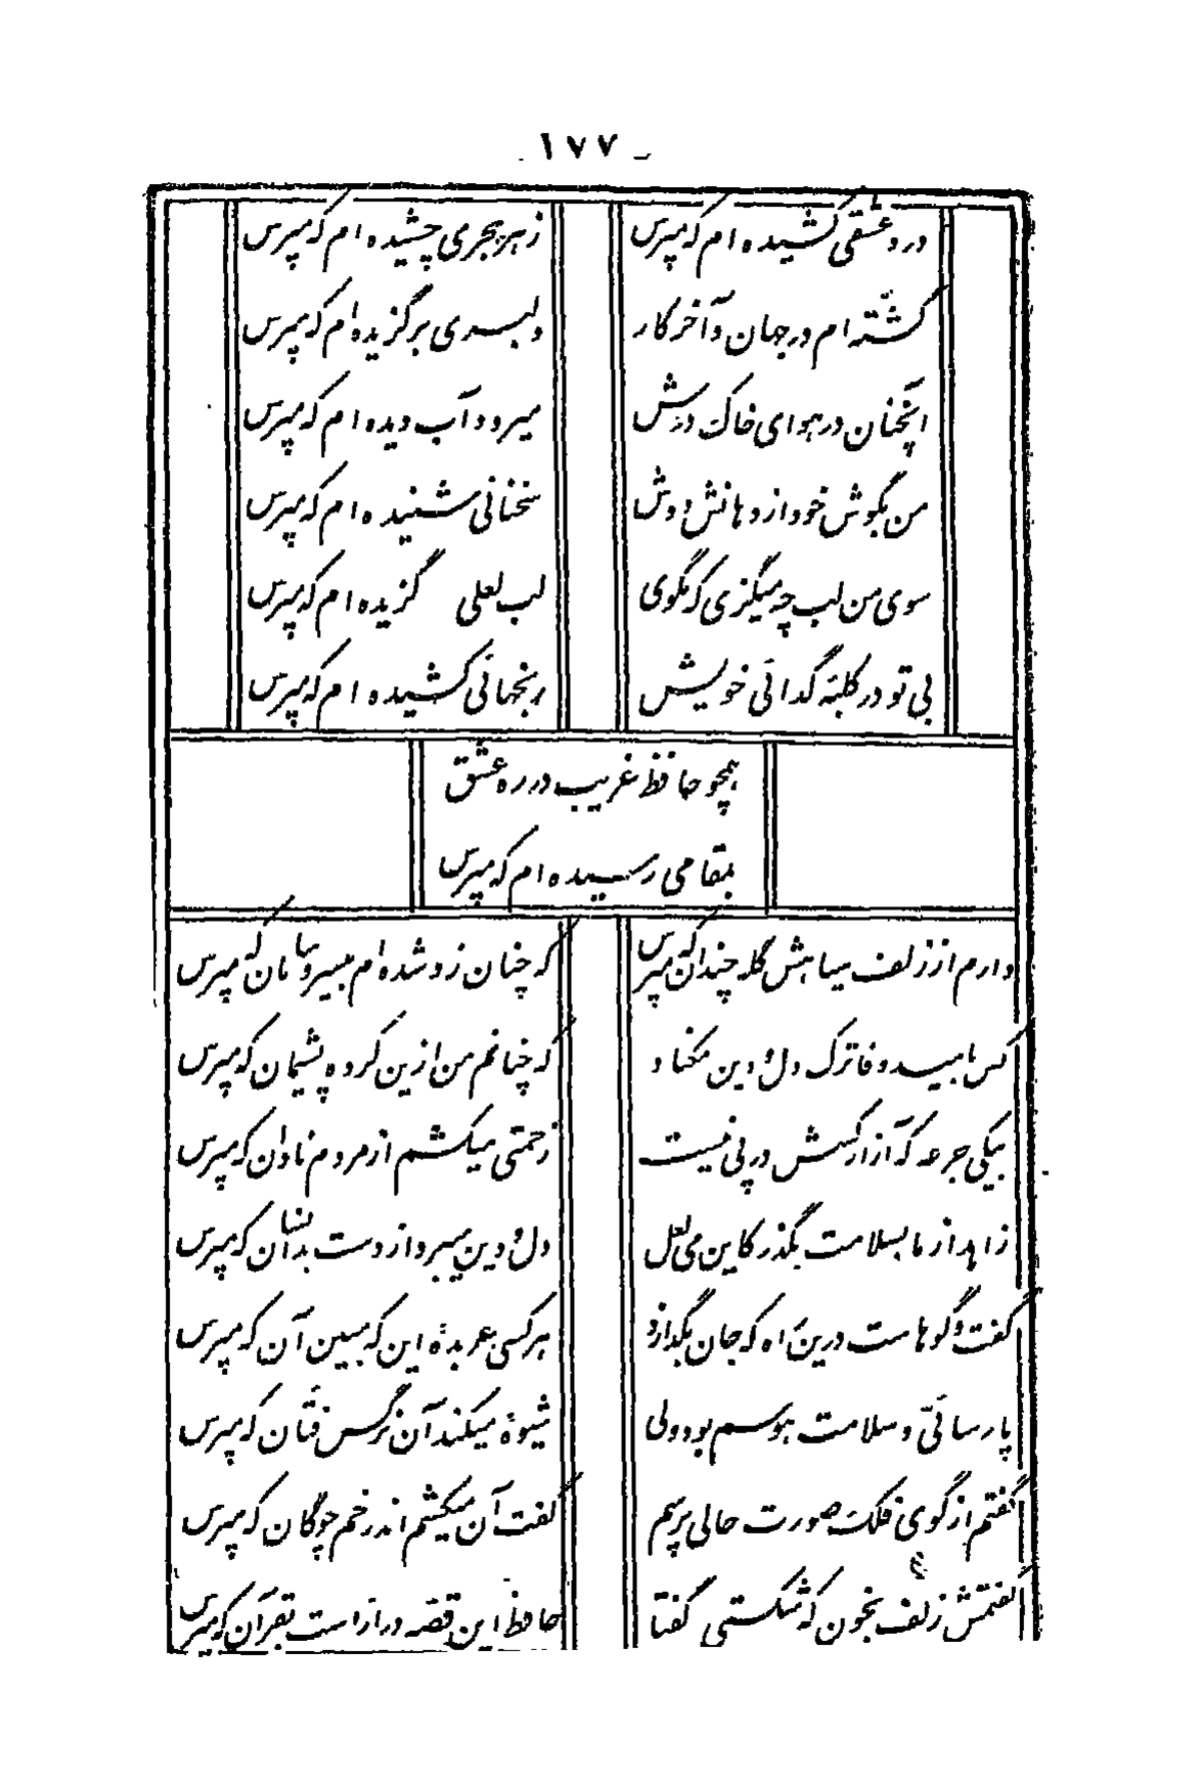 ـ ۱۷۷ ـ
درد عشقی کشیده ام که مپرس	زهر هجری چشیده ام که مپرس
گشته ام در جهان و آخر کار	دلبری برگزیده ام که مپرس
آنچنان در هوای خاک درش	میرود آب دیده ام که مپرس
من بگوش خود از دهانش دوش	سخنانی شنیده ام که مپرس
سوی من لب چه میگزی که مگوی	لب لعلی گزیده ام که مپرس
بی تو در کلبۀ گدائی خویش	رنجهائی کشیده ام که مپرس
همچو حافظ غریب در ره عشق
بمقامی رسیده ام که مپرس
دارم از زلف سیاهش گله چندان که مپرس	که چنان زو شده ام بیسروسامان که مپرس
کس بامید وفا ترک دل و دین مکناد	که چنانم من ازین کرده پشیمان که مپرس
بیکی جرعه که آزار کسش در پی نیست	زحمتی میکشم از مردم نادان که مپرس
زاهد از ما بسلامت بگذر کاین می لعل	دل و دین میبرد از دست بدانسان که مپرس
گفت و گوهاست درین راه که جان بگدازد	هر کسی عربدۀ این که مبین آن که مپرس
پارسائی و سلامت هوسم بود ولی	شیوۀ میکند آن نرگس فتان که مپرس
گفتم از گوی فلک صورت حالی پرسم	گفت آن میکشم اندر خم چوگان که مپرس
گفتمش زلف بخون که شکستی گفتا	حافظ این قصه دراز است بقرآن که مپرس